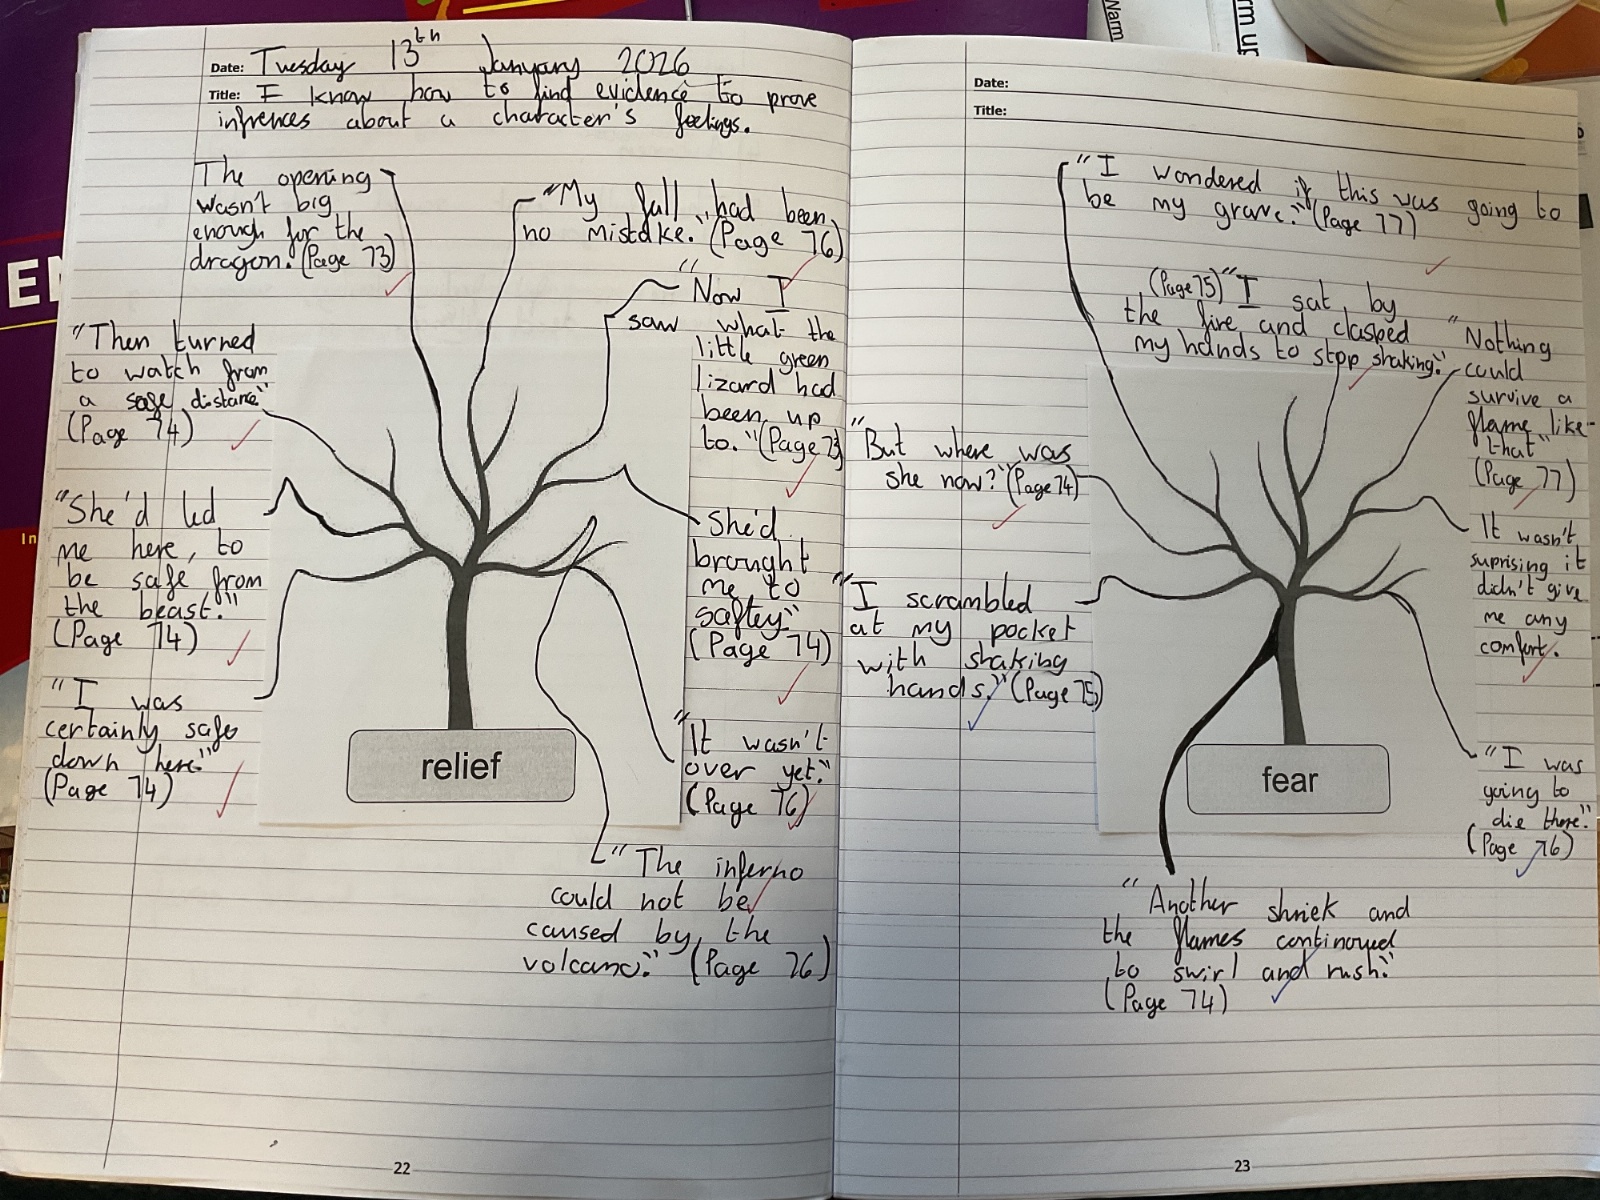 Date: Tuesday 13th January 2026
Title: I know how to find evidence to prove
infrences about a character's feelings.
The opening
wasn't big
enough for the
dragon. (Page 73)
"My fall had been
no mistake." (Page 76)
"Now I
saw what the
little green
lizard had
been up
to." (Page 73)
"Then turned
to watch from
a safe distance"
(Page 74)
"She'd led
me here, to
be safe from
the beast."
(Page 74)
She'd
brought
me to
saftey"
(Page 74)
"I was
certainly safe
down here"
(Page 74)
"It wasn't
over yet."
(Page 76)
relief
"The inferno
could not be
caused by the
volcano." (Page 76)
22
Date:
Title:
"I wondered if this was going to
be my grave." (Page 77)
(Page 75) "I sat by
the fire and clasped
my hands to stop shaking."
"Nothing
could
survive a
flame like
that"
(Page 77)
"But where was
she now?" (Page 74)
It wasn't
suprising it
didn't give
me any
comfort.
"I scrambled
at my pocket
with shaking
hands." (Page 75)
"I was
going to
die there."
(Page 76)
fear
"Another shriek and
the flames continoued
to swirl and rush."
(Page 74)
23
Warm
rm up
EN
In